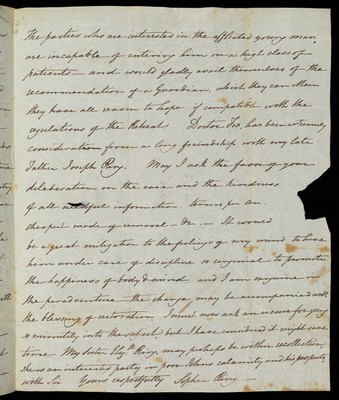 The parties who are interested in the afflicted young man
are incapable of entering him on a high class of
patients — and would gladly avail themselves of the
recommendation of a Guardian, which they can
they have all reason to hope if compatible with the
regulations of the Retreat Doctor Fox, has been
consideration from a long friendship with my late
Father Joseph May I ask the favor of your
deliberation on the case and the kindness
of all needful information terms per an.
cheapest mode of removal — &c — It would
be a great mitigation to the feelings of my mind to have
him under care of discipline so congenial to promote
the happiness of body & mind and I am sanguine in
the peradventure the change may be accompanied with
the blessing of restoration, I must now ask an excuse for going
so minutely into the subject, but I have considered it might save
time My Sister Eliz.th may perhaps be within recollection
she is an interested party in poor Johns calamity and his prospects
with Sir Yours respectfully Sophia